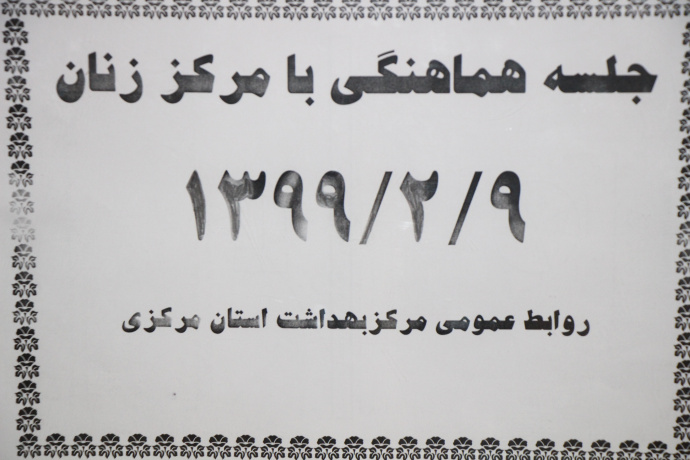 جلسه هماهنگی با مرکز زنان
۱۳۹۹/۲/۹
روابط عمومی مرکزبهداشت استان مرکزی